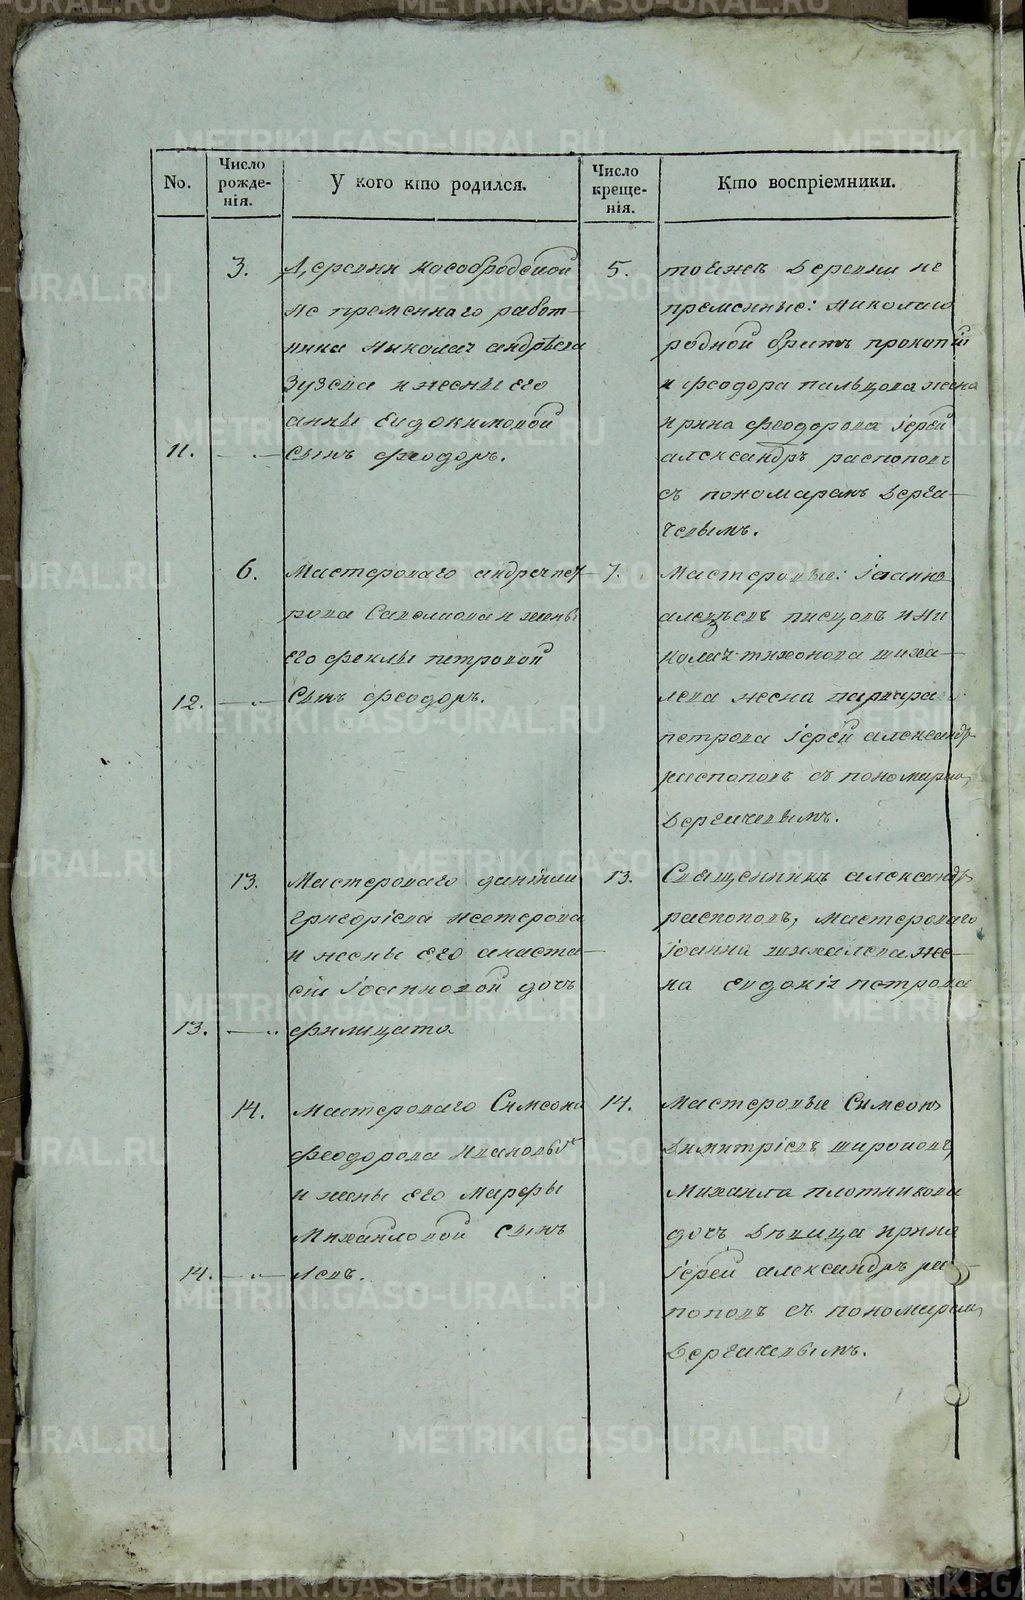 METRIKI.GASO-URAL.RU
No.
Число рожденія.
У кого кто родился.
Число крещенія.
Кто воспріемники.
3.
Деревни Кособродской
не пременнаго работ-
ника Николая андрѣева
Зуева и жены его
анны Евдокимовой
11.
Сынъ феодоръ.
5.
тоежъ деревни не
пременные: Николаю
родной братъ прокопій
и феодора пальцова жена
ирина феодорова іерей
александръ распоповъ
съ пономаремъ Дерга-
чевымъ.
6.
Мастероваго андрея пет-
рова Савелиова и жены
его феклы петровой
12.
Сынъ феодоръ.
7.
Мастеровые: іоаннъ
алексѣевъ писцовъ и ни
колая тихонова шиха-
лева жена
петрова іерей александръ
распоповъ съ пономаремъ
Дергачевымъ.
13.
Мастероваго даніила
григоріева Нестерова
и жены его анаста-
сіи іоанновой дочь
13.
филицата
13.
Священникъ александръ
распоповъ, мастероваго
іоанна шихалева же-
на евдокія петрова
14.
Мастероваго Симеона
феодорова Ивановыхъ
и жены его марфы
Михайловой сынъ
14.
Левъ.
14.
Мастеровые Симеонъ
Димитріевъ широковъ,
Михаила плотникова
дочь дѣвица ирина
іерей александръ рас-
поповъ съ пономаремъ
Дергачевымъ.